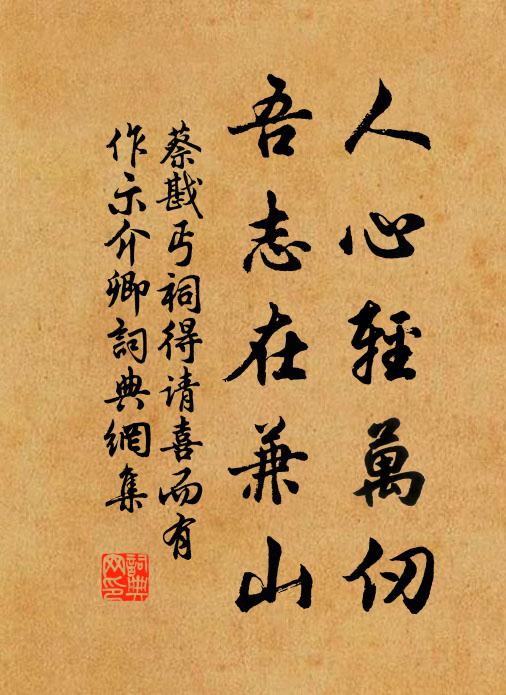 人心輕萬仞
吾志在兼山
蔡戡丐祠得请喜而有
作示介卿詞典網集
詞典
网印